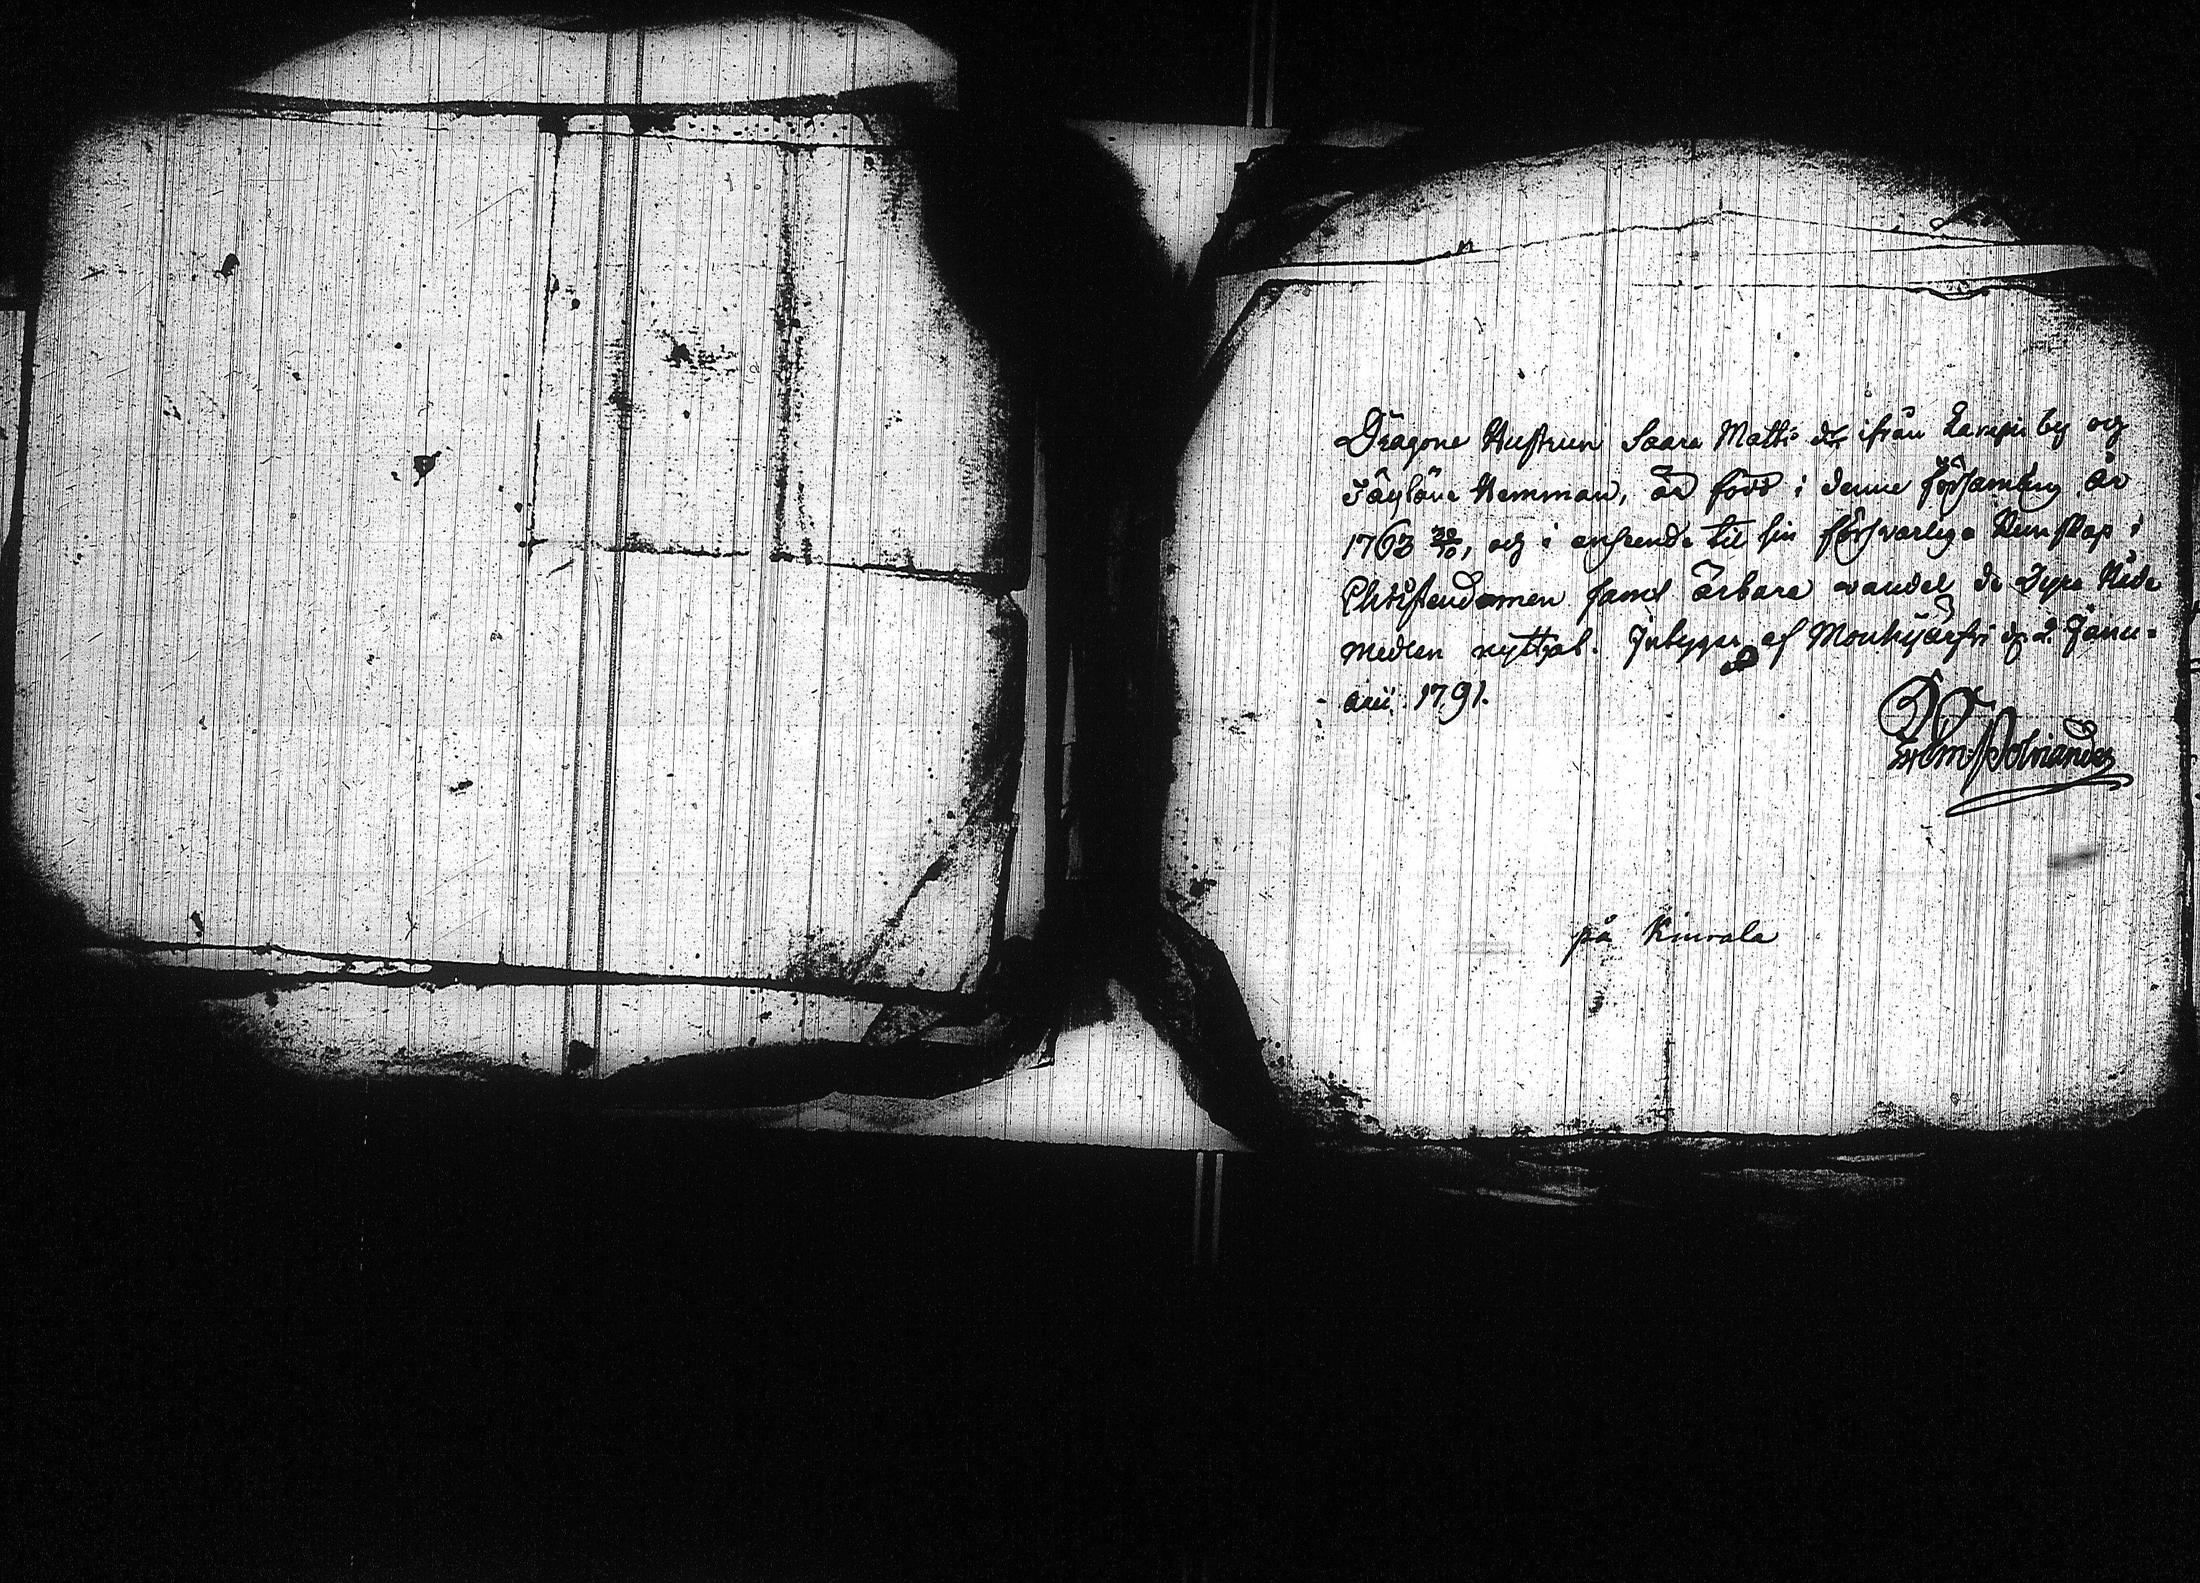 Dragone Hustrun Saara Matts dr ifrån Karpis by og
Täylöne Hemman, är född i denne församling år
1763 20/10, og i anseende til sin försvarliga Kunskap i
Christendomen samt ärbara vandel de dyra Nåde
medlen nyttjat. Intygar af Mouhijärfvi d. 2 Janu-
arii 1791.
på Kiurala